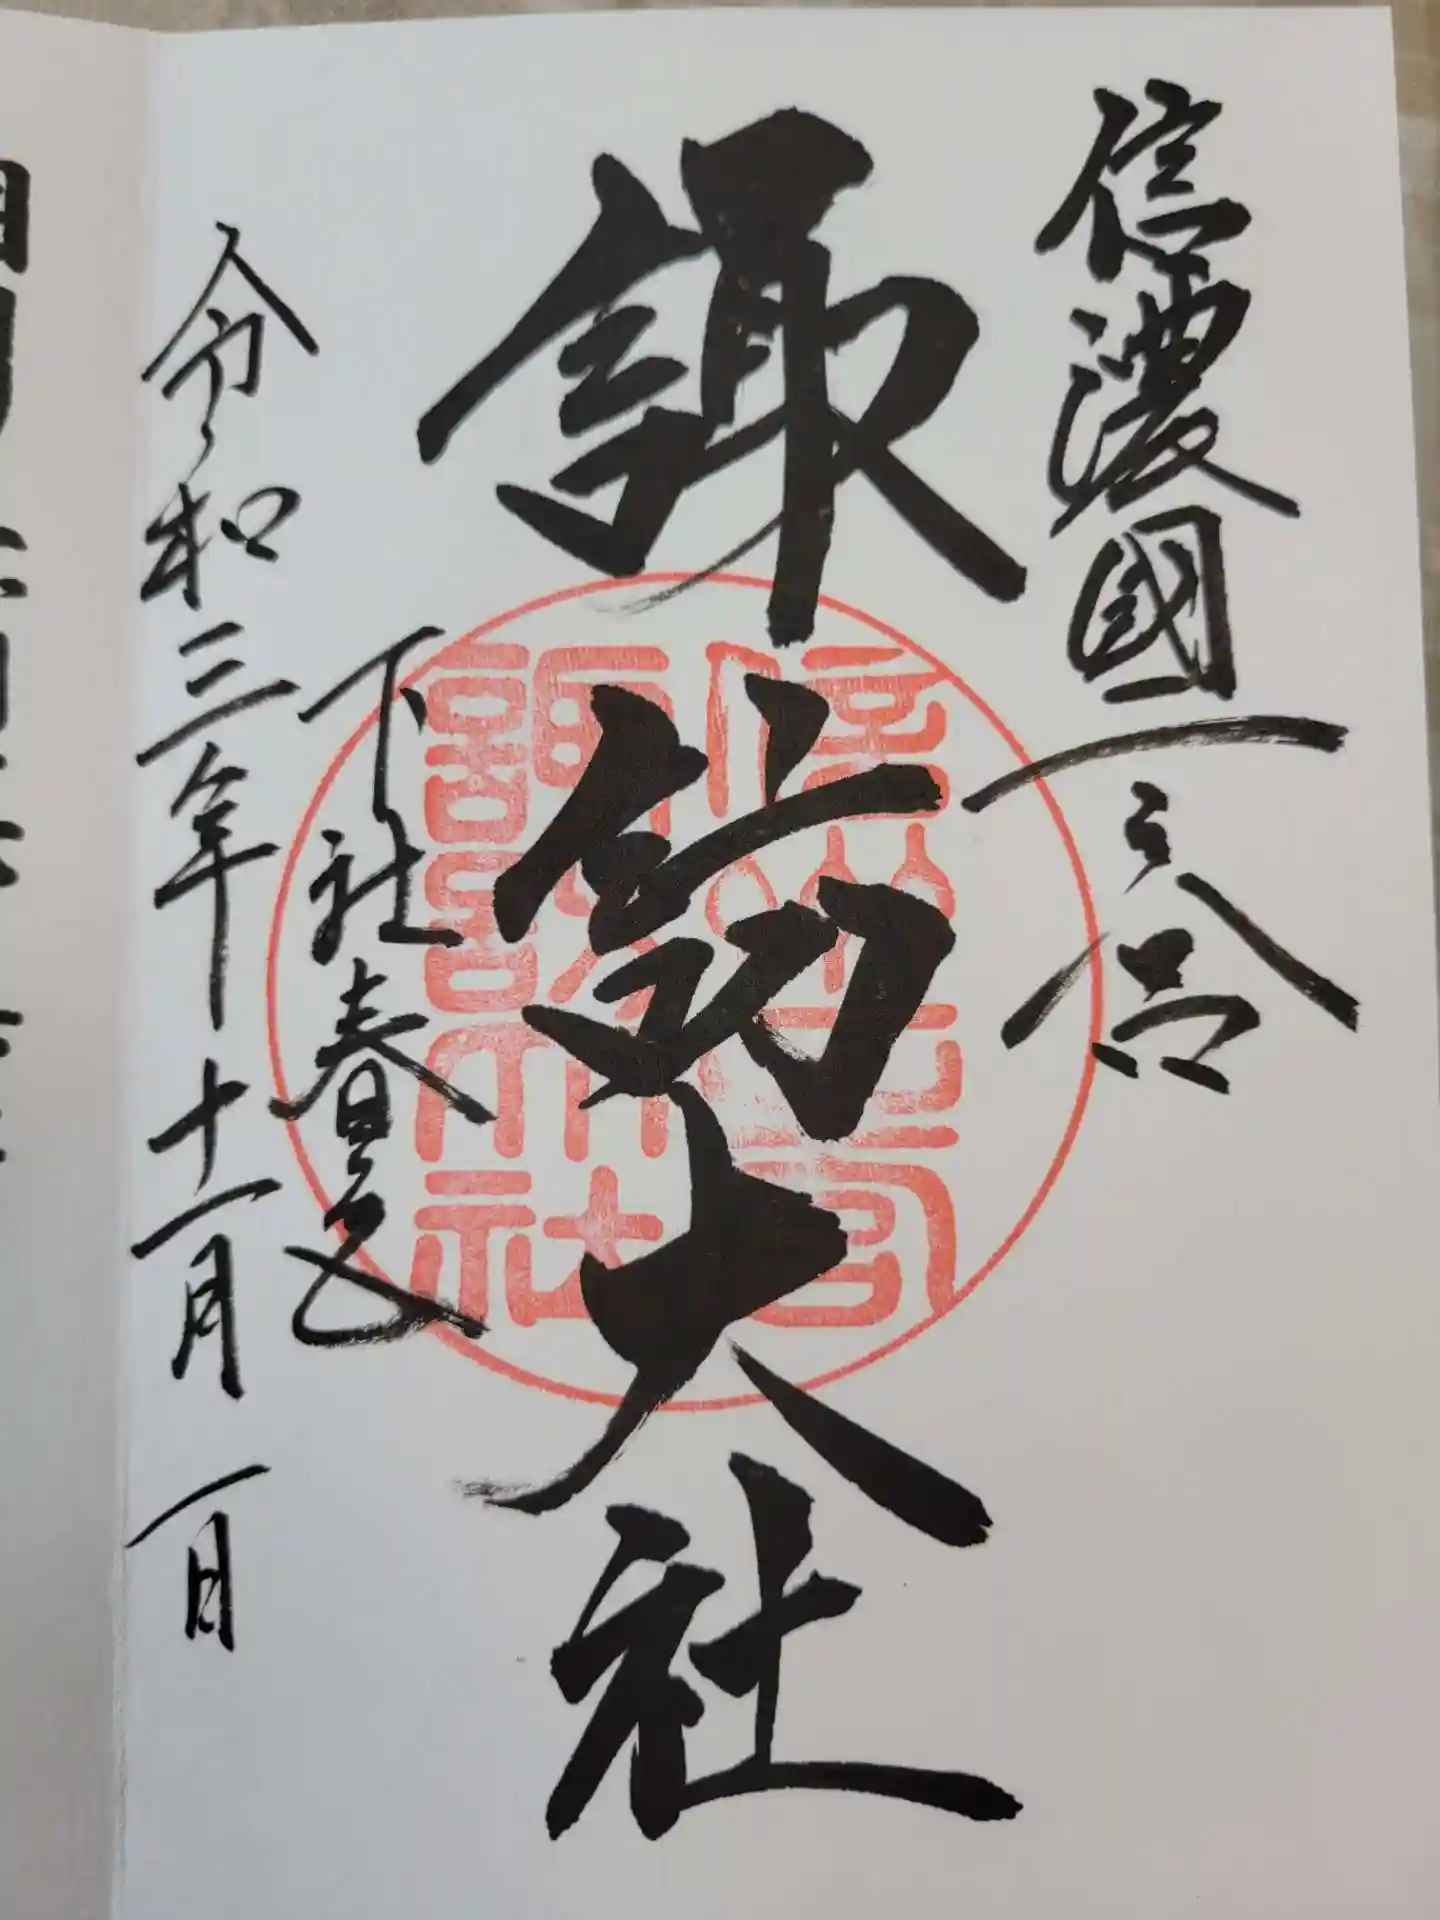 信濃國一之宮
諏訪大社
下社春宮
令和三年十一月一日
信州一之宮
諏訪大社